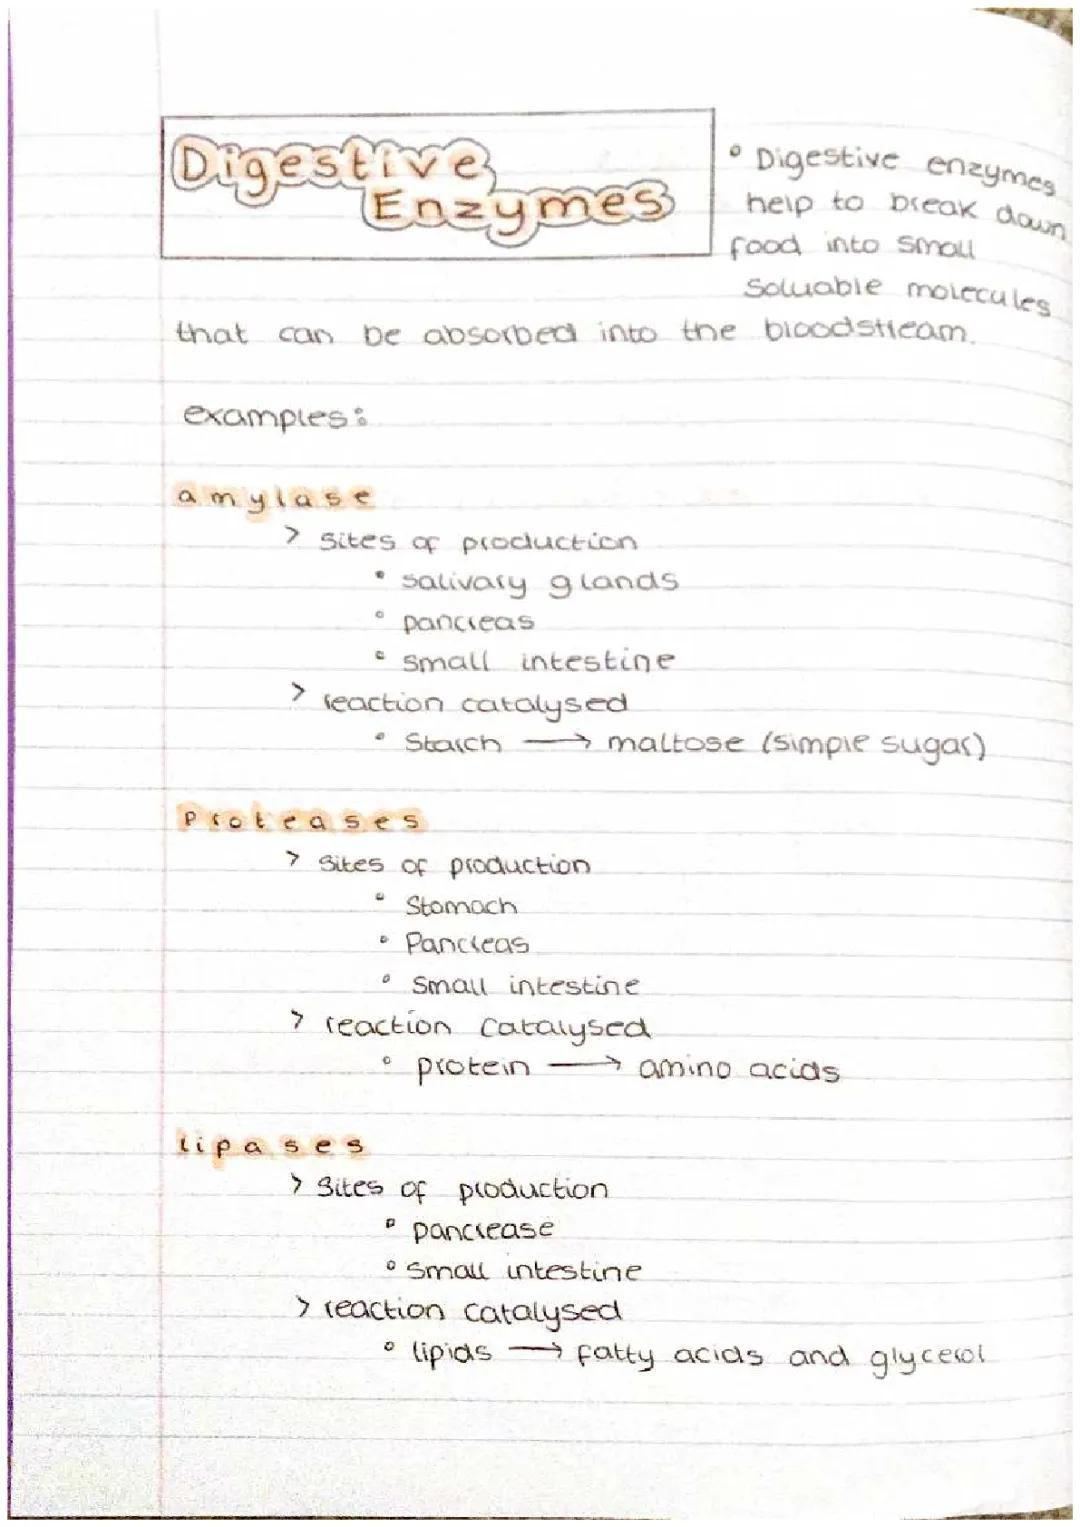 Digestive
Enzymes
• Digestive enzymes
help to break down
food into small
soluable molecules
that can be absorbed into the bloodstream.
examples:
amylase
> sites of production
• salivary glands
• pancreas
• small intestine
> reaction catalysed
• Starch → maltose (simple sugar)
Proteases
> sites of production
• Stomach
• Pancreas
• Small intestine
> reaction catalysed
• protein → amino acids
lipases
> Sites of production
• pancrease
• small intestine
> reaction catalysed
• lipids → fatty acids and glycerol